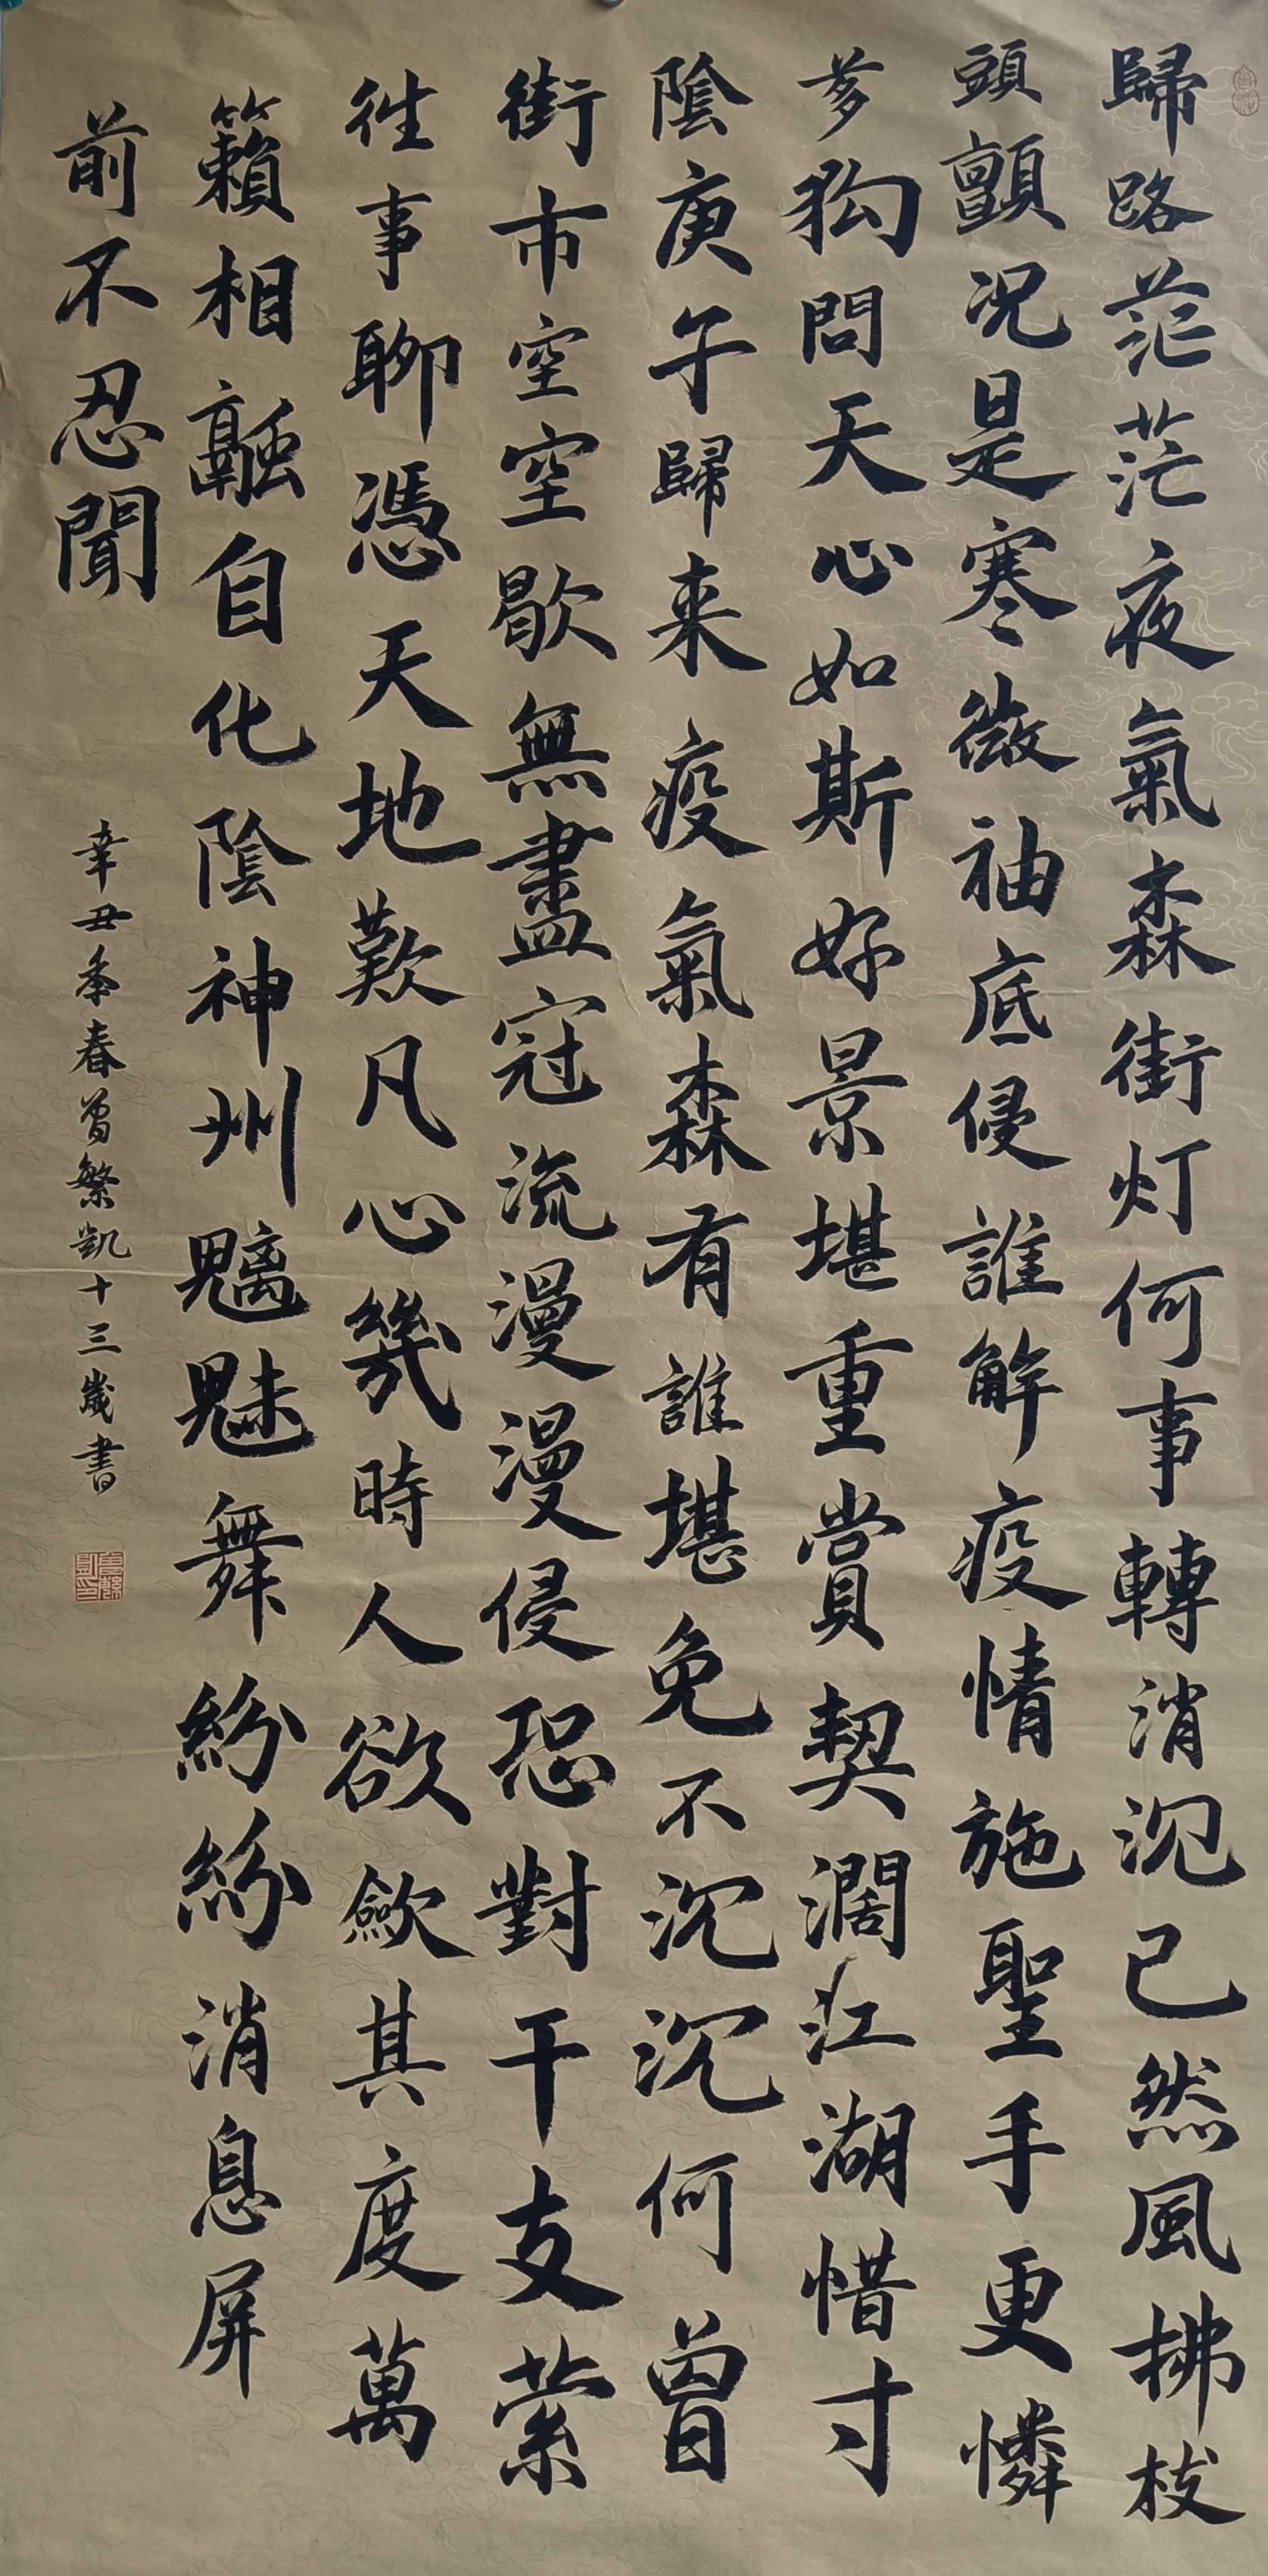 歸路茫茫夜氣森街灯何事轉消沉已然風拂枝
頭顫況是寒微袖底侵誰解疫情施聖手更憐
芻狗問天心如斯好景堪重賞契濶江湖惜寸
陰庚午歸来疫氣森有誰堪免不沉沉何曾
街市空空歇無盡冠流漫漫侵恐對干支縈
往事聊憑天地歎凡心幾時人欲斂其度萬
籟相融自化陰神州魑魅舞紛紛消息屏
前不忍聞
辛丑季春曾繁凱十三歲書